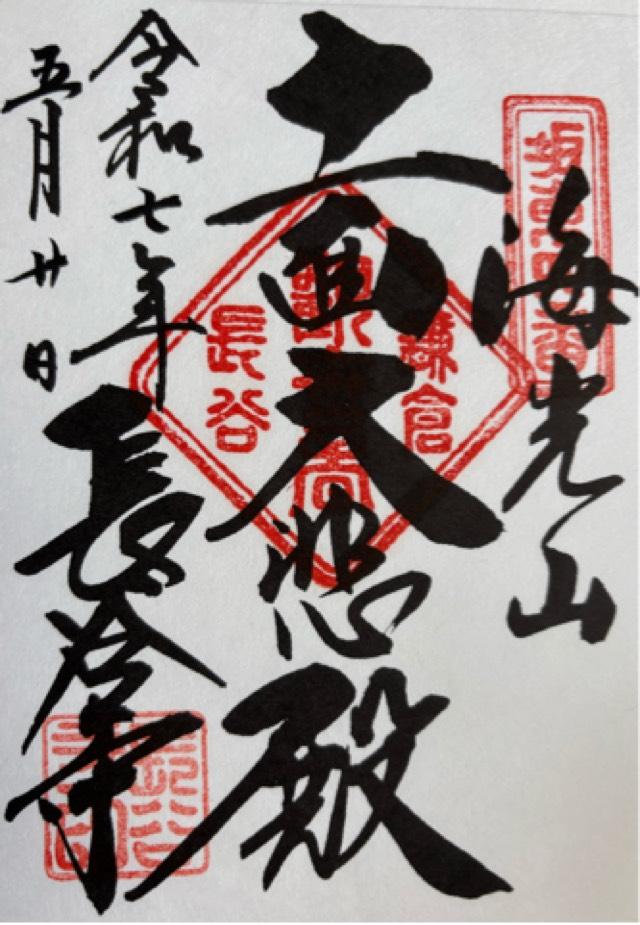 坂東四番
海光山
十一面大悲殿
鎌倉
長谷
令和七年
五月廿日
長谷寺